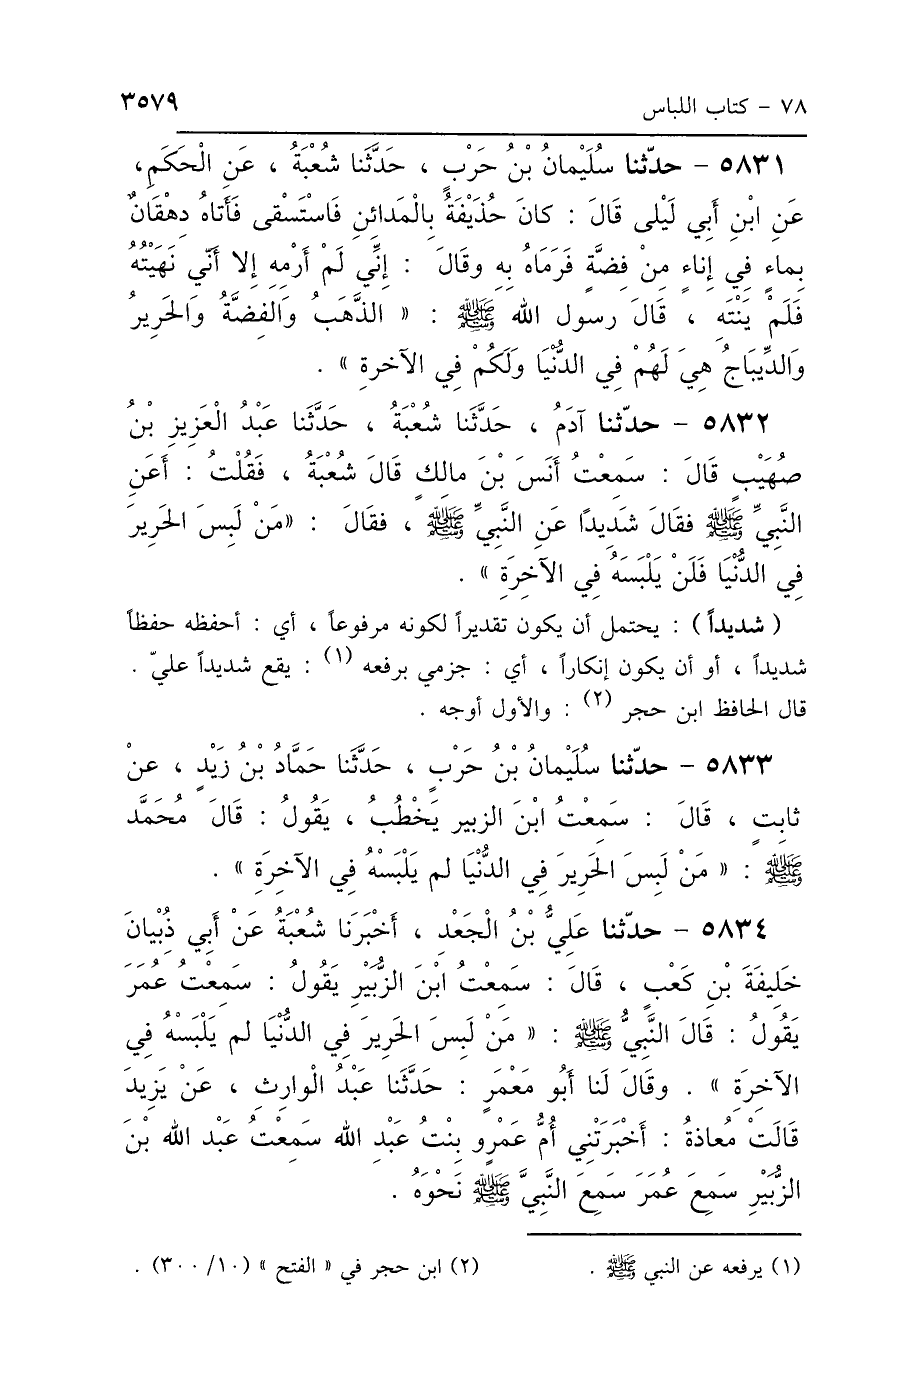 ٧٨ - كتاب اللباس ٣٥٧٩
٥٨٣١ - حدّثنا سُلَيمانُ بْنُ حَرْبٍ ، حَدَّثَنا شُعْبَةُ ، عَنِ الْحَكَمِ،
عَنِ ابْنِ أَبي لَيْلى قَالَ : كانَ حُذَيْفَةُ بِالْمَدائنِ فَاسْتَسْقى فَأَتاهُ دِهْقَانٌ
بِماءٍ فِي إِناءٍ مِنْ فِضَّةٍ فَرَمَاهُ بِهِ وقَالَ : إِنِّي لَمْ أَرْمِهِ إِلا أَنّي نَهَيْتُهُ
فَلَمْ يَنْتَهِ ، قَالَ رسول الله ﷺ : « الذَّهَبُ وَالفِضَّةُ وَالحَرِيرُ
وَالدِّيبَاجُ هِيَ لَهُمْ فِي الدُّنْيَا وَلَكُمْ فِي الآخرةِ » .
٥٨٣٢ - حدّثنا آدَمُ ، حَدَّثَنا شُعْبَةُ ، حَدَّثَنا عَبْدُ الْعَزِيزِ بْنُ
صُهَيْبٍ قَالَ : سَمِعْتُ أَنَسَ بْنَ مالكٍ قَالَ شُعْبَةُ ، فَقُلْتُ : أَعَنِ
النَّبِيِّ ﷺ فقَالَ شَدِيدًا عَنِ النَّبِيِّ ﷺ ، فقَالَ : «مَنْ لَبِسَ الحَرِيرَ
فِي الدُّنْيَا فَلَنْ يَلْبَسَهُ فِي الآخِرَةِ » .
( شديداً ) : يحتمل أن يكون تقديراً لكونه مرفوعاً ، أي : أحفظه حفظاً
شديداً ، أو أن يكون إنكاراً ، أي : جزمي برفعه (١) : يقع شديداً عليّ .
قال الحافظ ابن حجر (٢) : والأول أوجه .
٥٨٣٣ - حدّثنا سُلَيْمانُ بْنُ حَرْبٍ ، حَدَّثَنا حَمَّادُ بْنُ زَيْدٍ ، عنْ
ثابتٍ ، قَالَ : سَمِعْتُ ابْنَ الزبيرِ يَخْطُبُ ، يَقُولُ : قَالَ مُحَمَّد
ﷺ : « مَنْ لَبِسَ الحَرِيرَ فِي الدُّنْيَا لم يَلْبَسْهُ فِي الآخِرَةِ » .
٥٨٣٤ - حدّثنا عَلِيُّ بْنُ الْجَعْدِ ، أَخْبَرَنا شُعْبَةُ عَنْ أَبي ذُبْيانَ
خَلِيفَةَ بْنِ كَعْبٍ ، قَالَ : سَمِعْتُ ابْنَ الزُّبَيْرِ يَقُولُ : سَمِعتُ عُمَرَ
يَقُولُ : قَالَ النَّبِيُّ ﷺ : « مَنْ لَبِسَ الحَرِيرَ فِي الدُّنْيَا لم يَلْبَسْهُ فِي
الآخِرَةِ » . وقَالَ لَنا أَبُو مَعْمَرٍ : حَدَّثَنا عَبْدُ الْوارثِ ، عَنْ يَزِيدَ
قَالَتْ مُعاذةُ : أَخْبَرَتْنِي أُمُّ عَمْرٍو بِنْتُ عَبْدِ الله سَمِعْتُ عَبْد الله بْنَ
الزُّبَيْرِ سَمِعَ عُمَرَ سَمِعَ النَّبِيَّ ﷺ نَحْوَهُ .
(١) يرفعه عن النبي ﷺ . (٢) ابن حجر في « الفتح » (١٠/ ٣٠٠) .